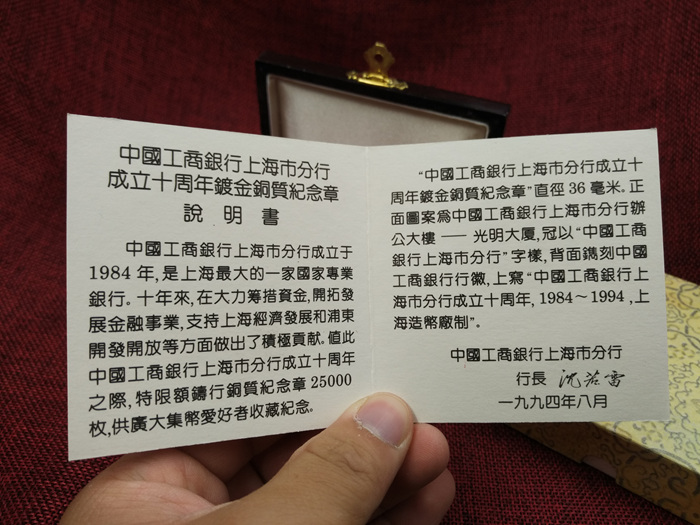 中國工商銀行上海市分行
成立十周年鍍金銅質紀念章
說明書
中國工商銀行上海市分行成立于
1984年,是上海最大的一家國家專業
銀行。十年來,在大力籌措資金,開拓發
展金融事業,支持上海經濟發展和浦東
開發開放等方面做出了積極貢献。值此
中國工商銀行上海市分行成立十周年
之際,特限額鑄行銅質紀念章25000
枚,供廣大集幣愛好者收藏紀念。
“中國工商銀行上海市分行成立十
周年鍍金銅質紀念章”直徑36毫米。正
面圖案爲中國工商銀行上海市分行辦
公大樓——光明大厦,冠以“中國工商
銀行上海市分行”字樣,背面鐫刻中國
工商銀行行徽,上寫“中國工商銀行上
海市分行成立十周年,1984～1994,上
海造幣廠制”。
中國工商銀行上海市分行
行長 沈若雷
一九九四年八月